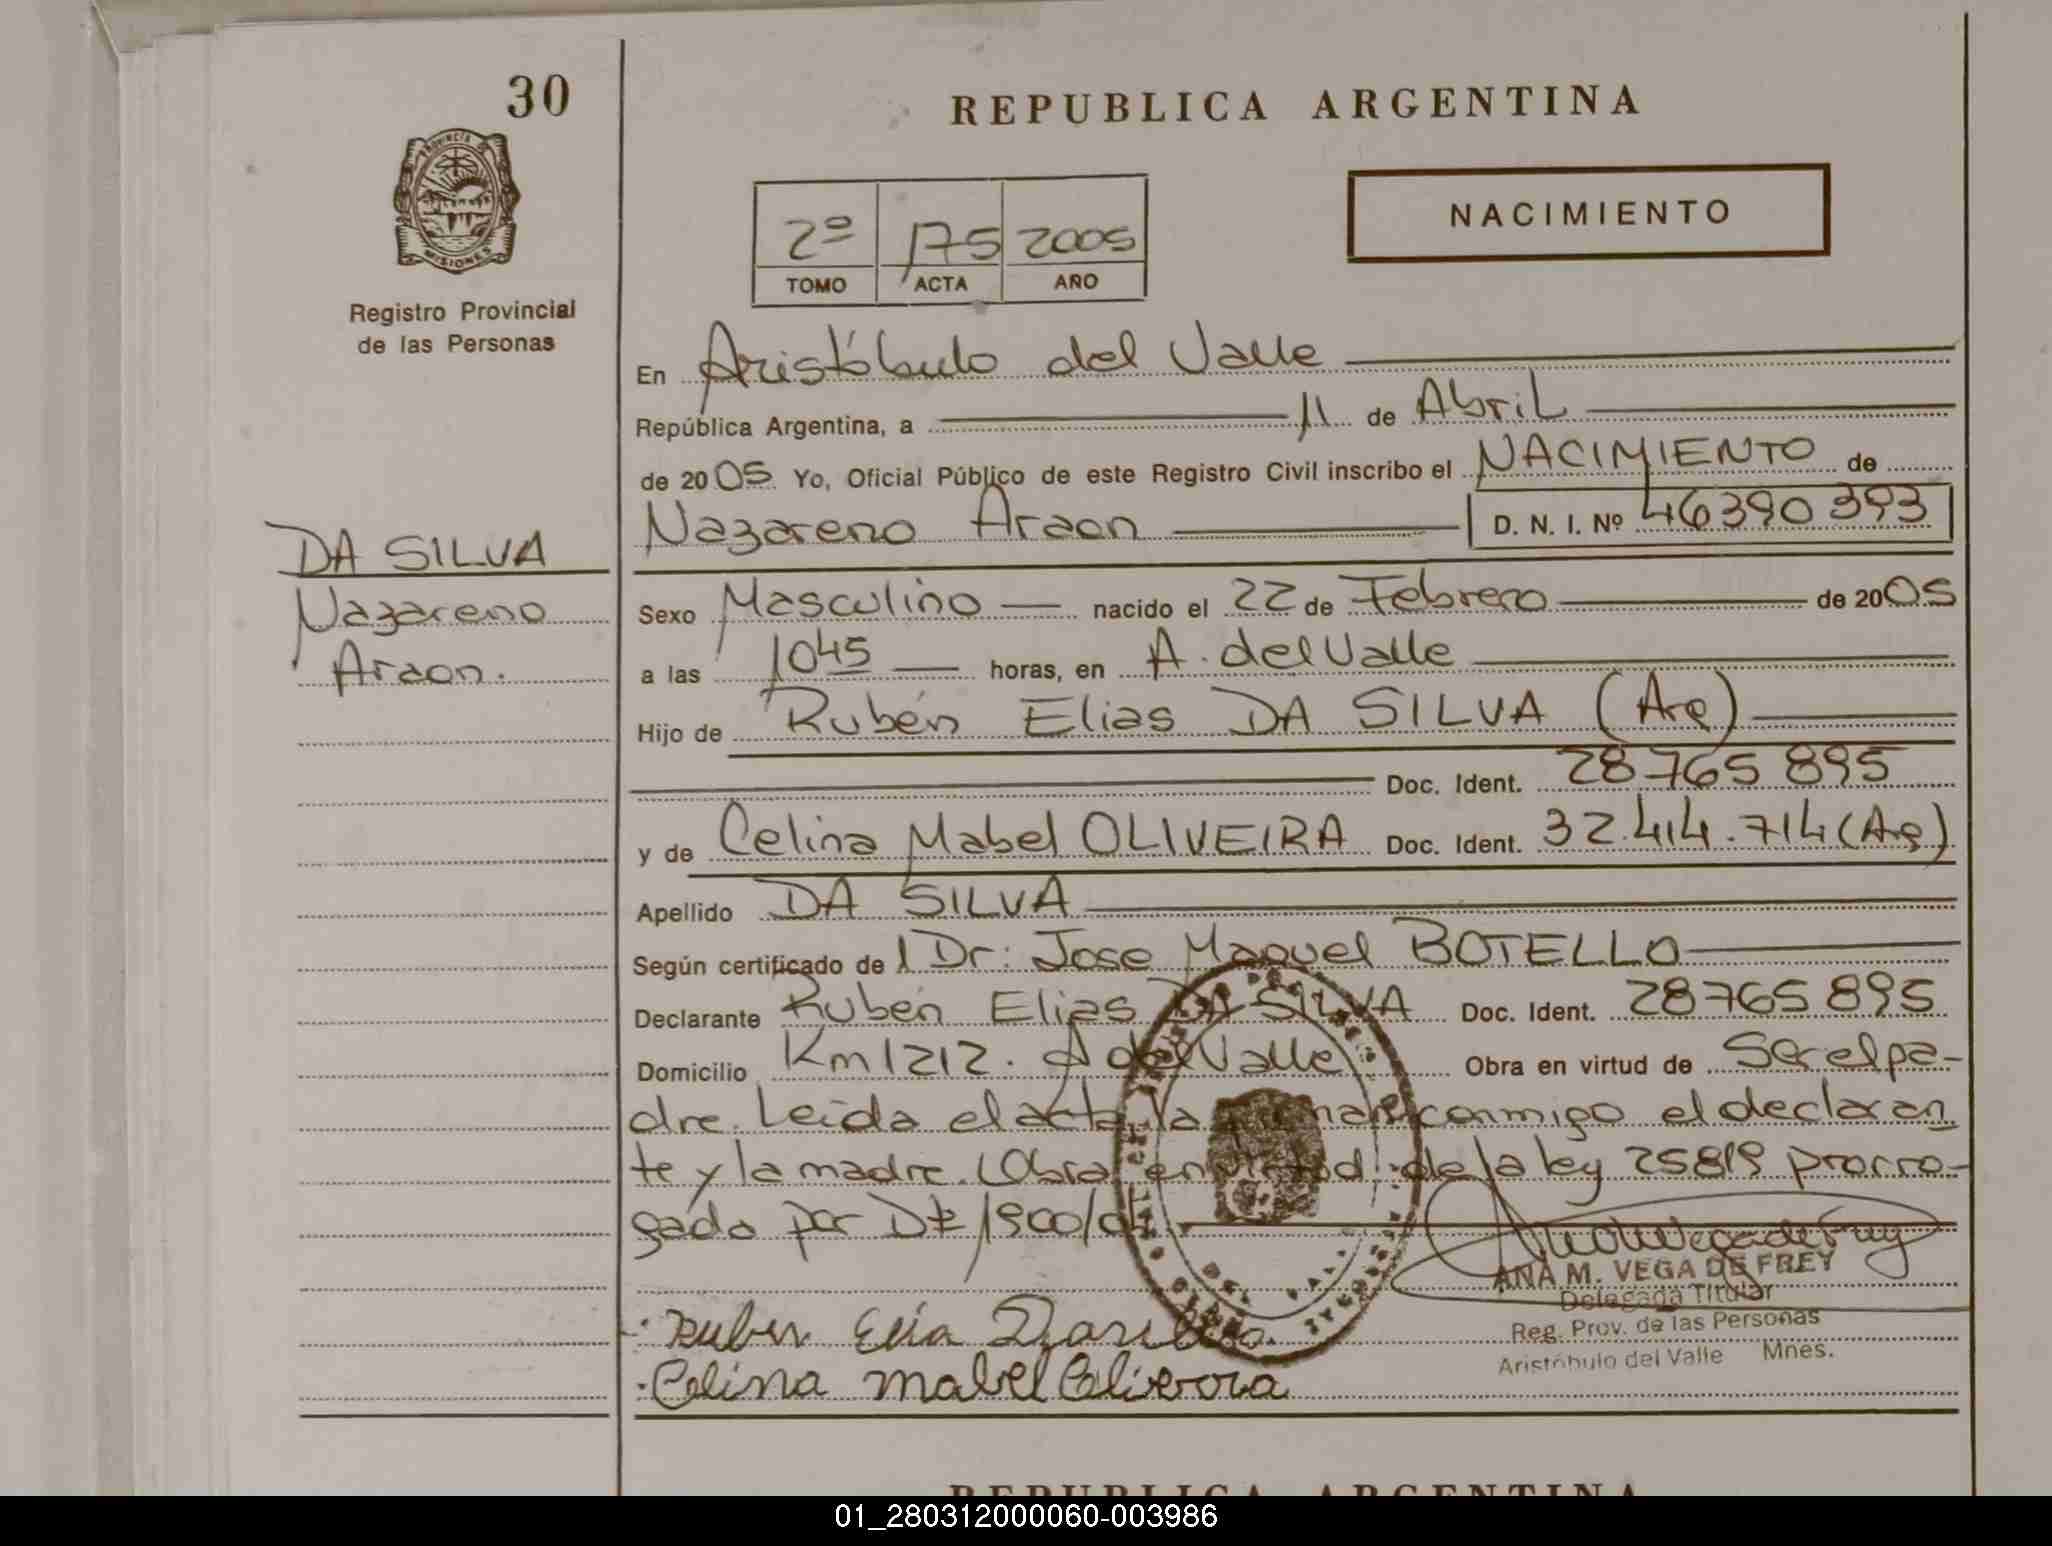 30
REPUBLICA ARGENTINA
PROVINCIA DE
MISIONES
Registro Provincial
de las Personas
2º 175 2005
TOMO ACTA AÑO
NACIMIENTO
En Aristóbulo del Valle
República Argentina, a 11 de Abril
de 2005 Yo, Oficial Público de este Registro Civil inscribo el NACIMIENTO de
Nazareno Araon D. N. I. Nº 46390393
DA SILVA
Nazareno
Araon.
Sexo Masculino nacido el 22 de Febrero de 2005
a las 1045 horas, en A. del Valle
Hijo de Rubén Elias DA SILVA (Arg)
Doc. Ident. 28765895
y de Celina Mabel OLIVEIRA Doc. Ident. 32.414.714 (Arg)
Apellido DA SILVA
Según certificado de l Dr: Jose Manuel BOTELLO
Declarante Rubén Elias DA SILVA Doc. Ident. 28765895
Domicilio Km 1212. A del Valle Obra en virtud de Ser el pa-
dre. Leida el acta la firman conmigo el declaran
te y la madre. (Obra en virtud de la ley 25819 prorro-
gado por Dto 1900/04.
ANA M. VEGA DE FREY
Delegada Titular
Reg. Prov. de las Personas
Aristóbulo del Valle Mnes.
Ruben Elia Dasilva.
Celina mabel Oliveira
REPUBLICA ARGENTINA
01_280312000060-003986